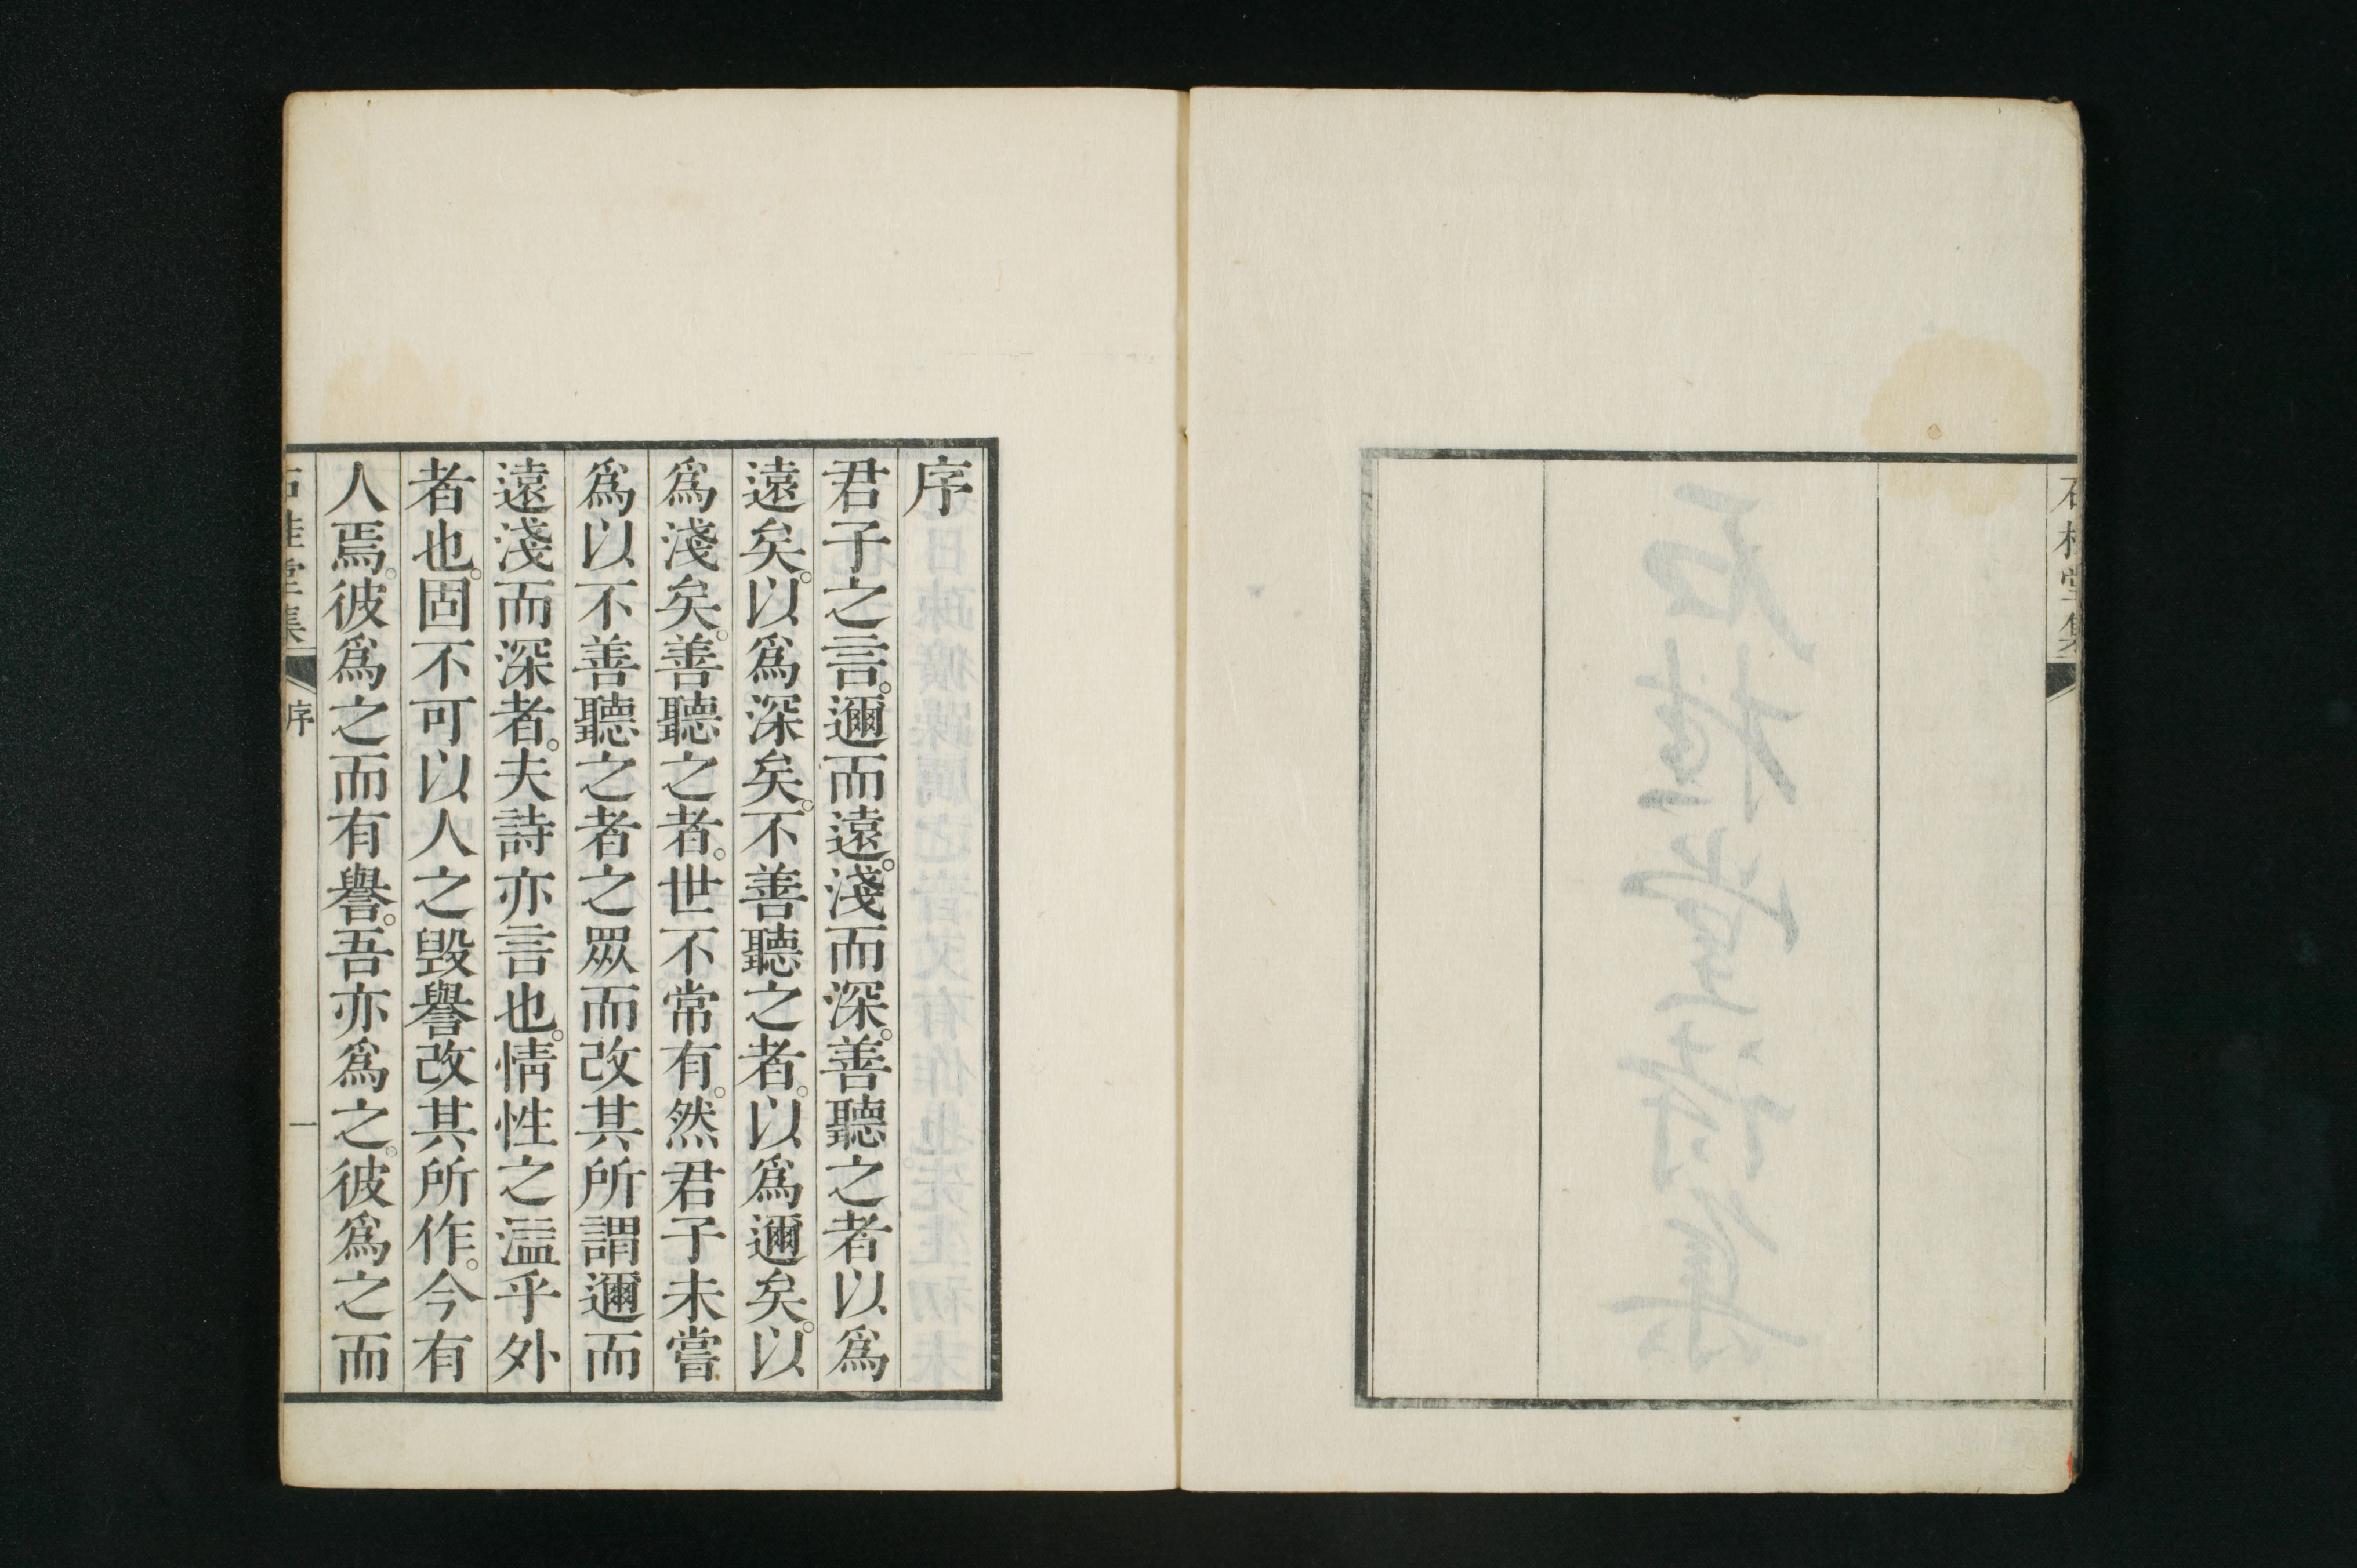 石桂堂集
序
君子之言。邇而遠。淺而深。善聽之者以爲
遠矣。以爲深矣。不善聽之者。以爲邇矣。以
爲淺矣。善聽之者。世不常有。然君子未嘗
爲以不善聽之者之眾而改其所謂邇而
遠淺而深者。夫詩亦言也。情性之溢乎外
者也。固不可以人之毀譽改其所作。今有
人焉。彼爲之而有譽。吾亦爲之。彼爲之而
石桂堂集 序 一